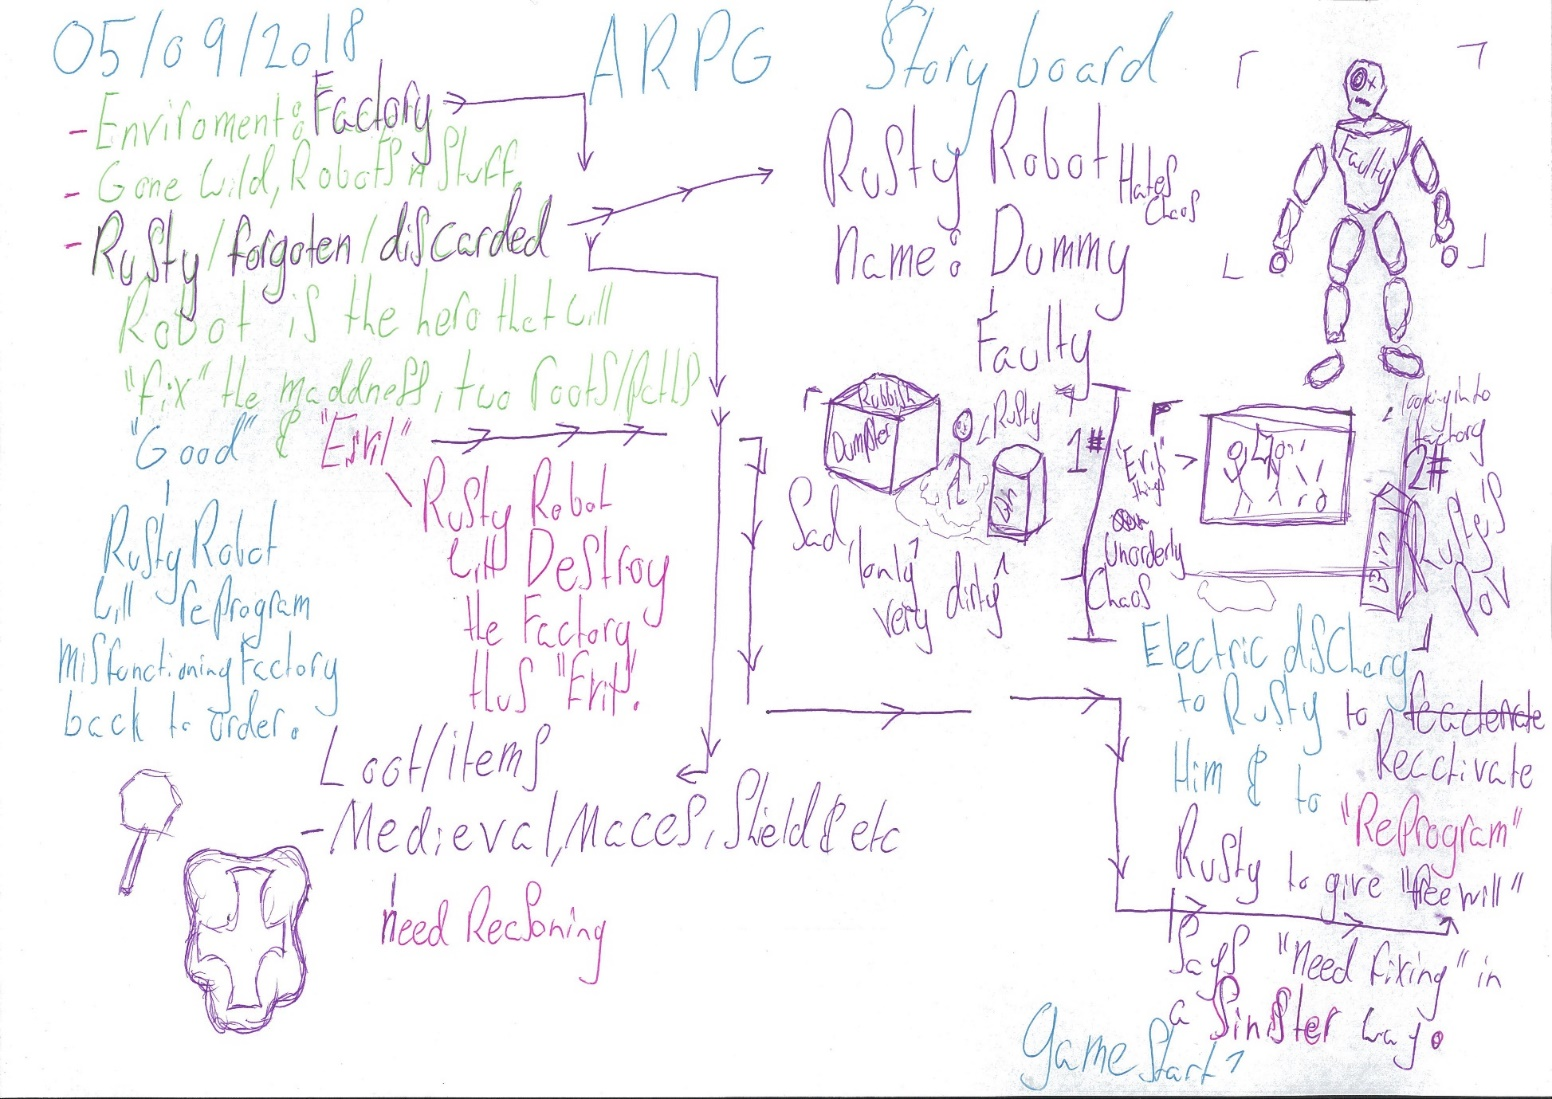 05/09/2018
ARPG
Story board
- Enviroment: Factory
- Gone Wild, Robots n Stuff.
- Rusty/forgoten/discarded
Robot is the hero that will
"fix" the maddness, two roots/paths
"Good" & "Evil"
Rusty Robot
will reprogram
misfunctioning Factory
back to order.
Rusty Robot
will Destroy
the Factory
thus "Evil".
Loot/items
- Medieval, Maces, Shield & etc
need Reasoning
Rusty Robot Hates
Chaos
Name: Dummy
Faulty
Faulty
Rubbish
Dumpster
Rusty
Bin
1#
Sad, lonly
very dirty
"Evil"
things
Unorderly
Chaos
looking into
factory
2#
Bin
Rusty's
POV
Electric discharg
to Rusty to
Him & to Reactivate
"Reprogram"
Rusty to give "free will"
Says "Need fixing" in
a Sinister way.
Game Start